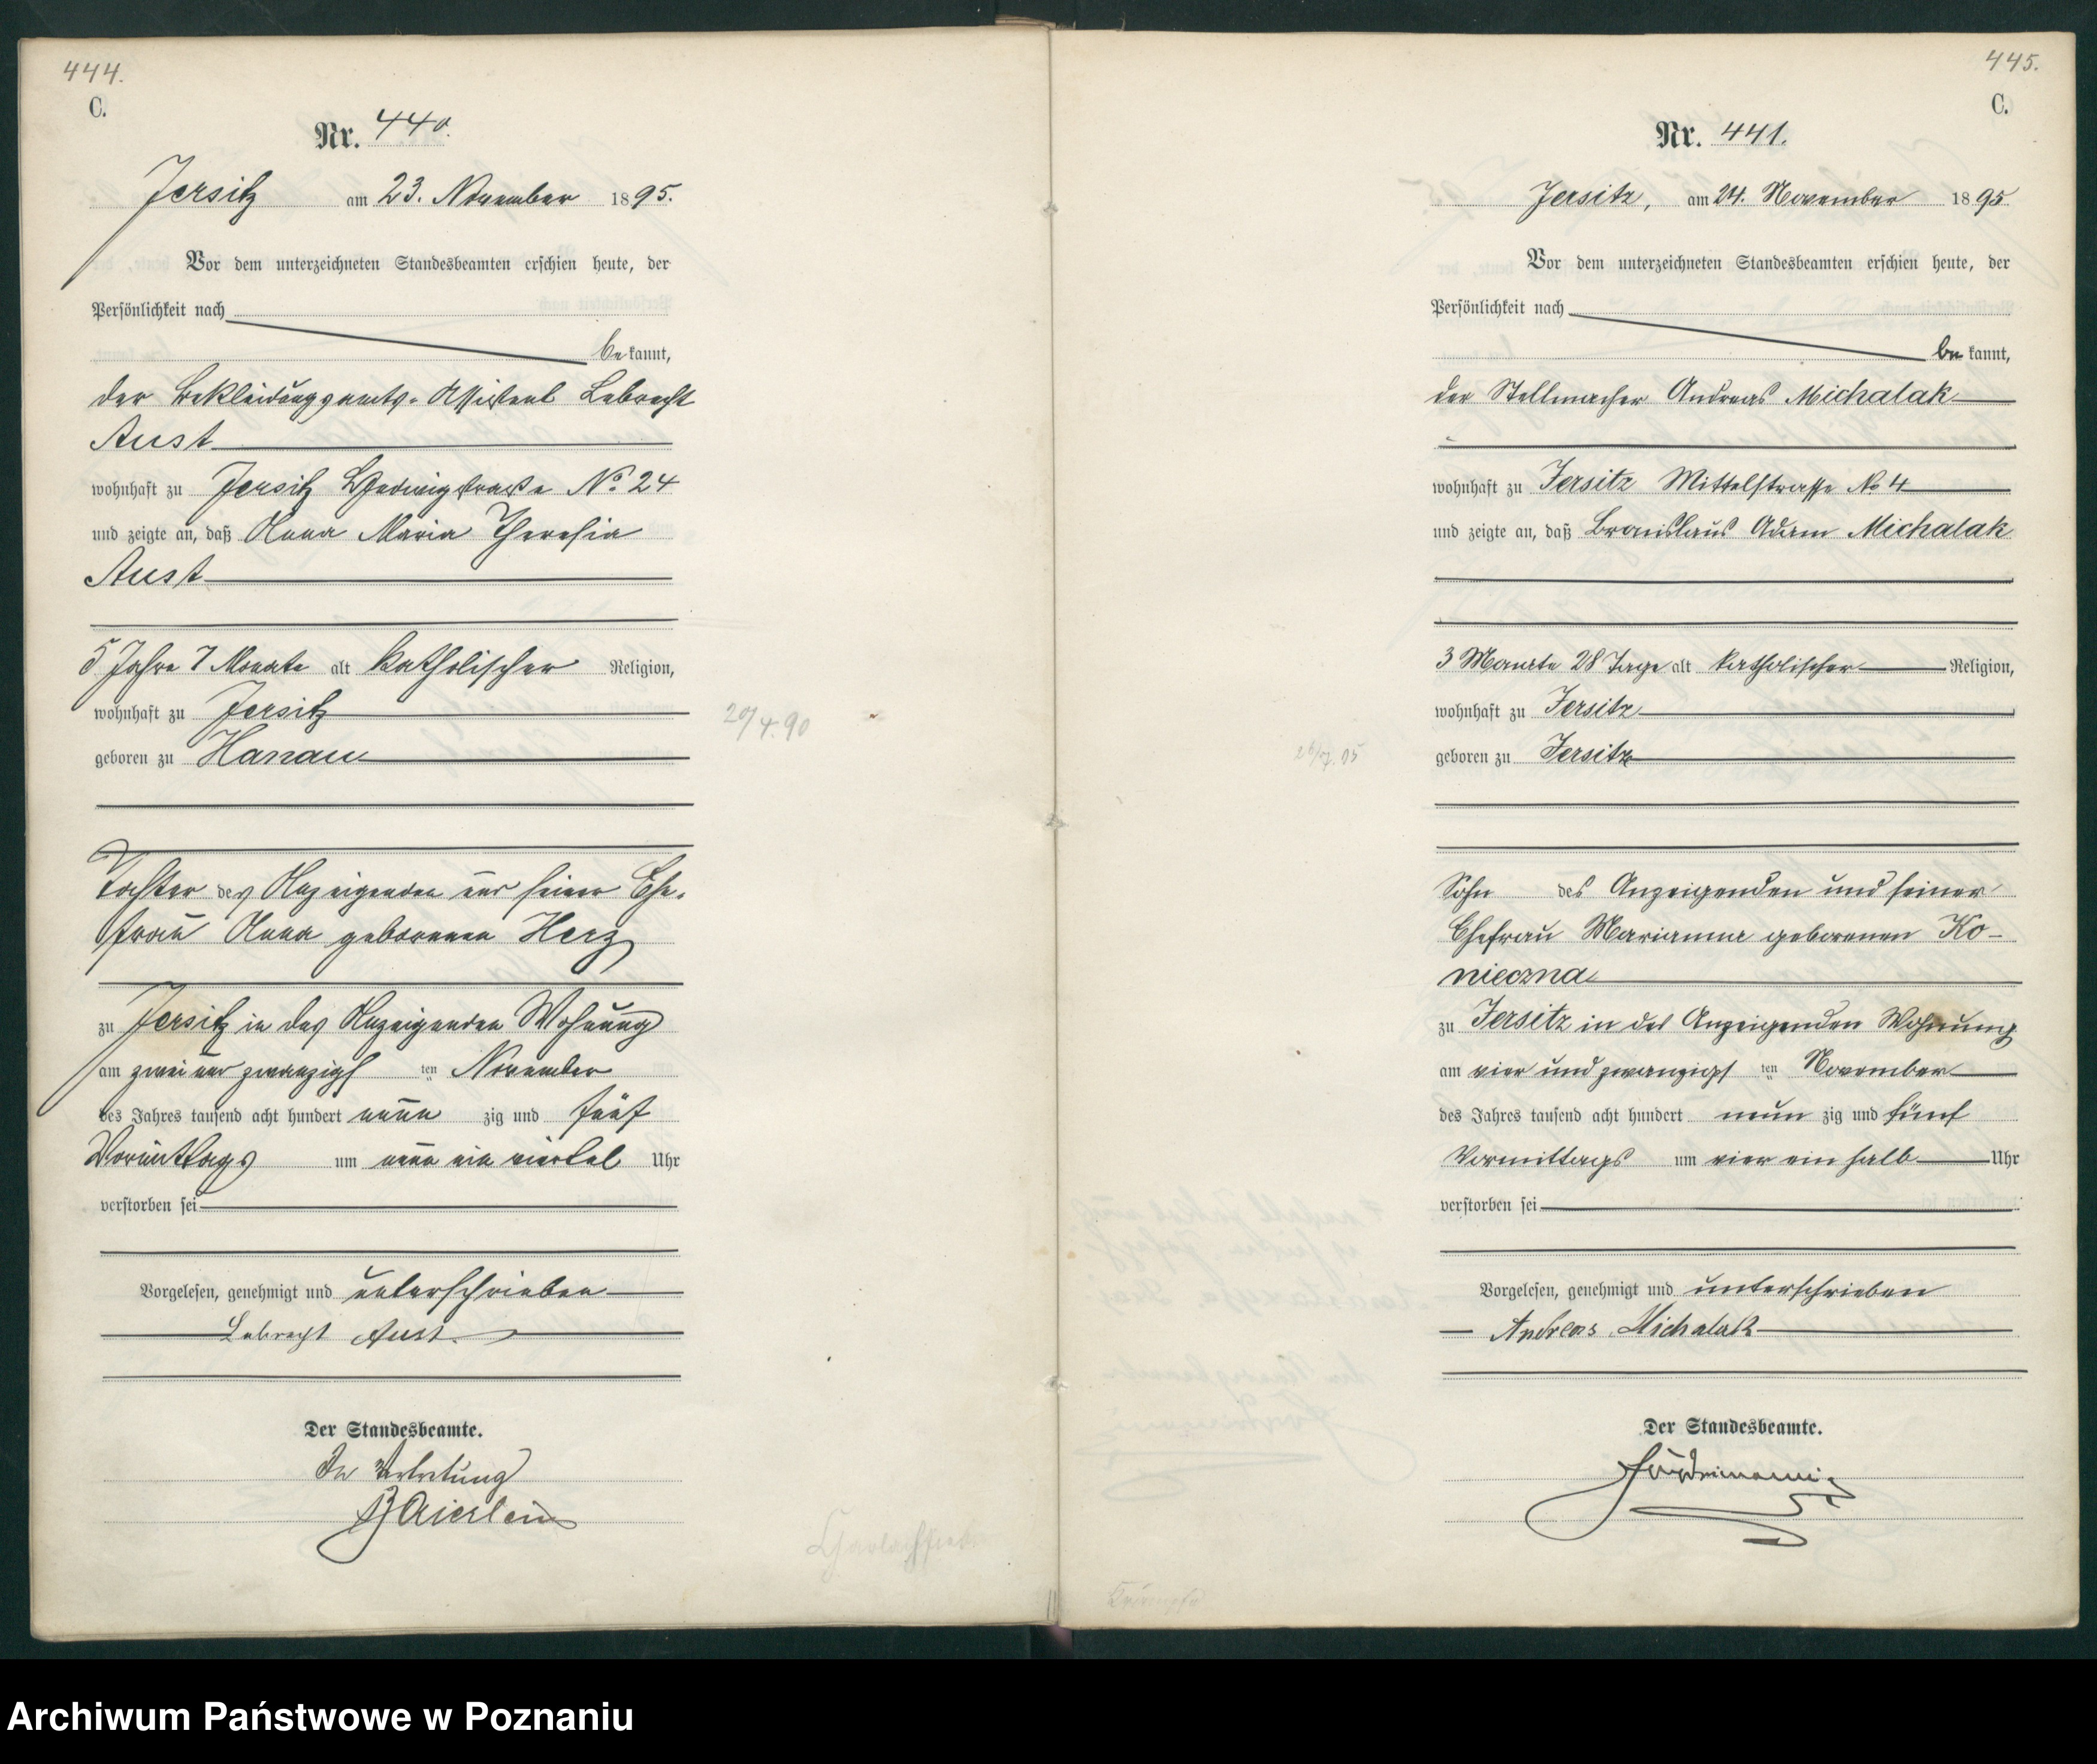 444.
C.
Nr. 440.
Jersitz am 23. November 1895.
Vor dem unterzeichneten Standesbeamten erschien heute, der
Persönlichkeit nach
bekannt,
der Bekleidungsamts-Assistent Lebrecht
Aust
wohnhaft zu Jersitz Hedwigstrasse No 24
und zeigte an, daß Anna Maria Theresia
Aust
5 Jahre 7 Monate alt katholischer Religion,
wohnhaft zu Jersitz
geboren zu Hanau
20/4.90
Tochter des Anzeigenden und seiner Ehe-
frau Anna geborenen Herz
zu Jersitz in des Anzeigenden Wohnung
am zwei und zwanzigsten November
des Jahres tausend acht hundert neun zig und fünf
Vormittags um neun ein viertel Uhr
verstorben sei
Vorgelesen, genehmigt und unterschrieben
Lebrecht Aust.
Der Standesbeamte.
In Vertretung
Baierlein
445.
C.
Nr. 441.
Jersitz, am 24. November 1895
Vor dem unterzeichneten Standesbeamten erschien heute, der
Persönlichkeit nach
bekannt,
der Stellmacher Andreas Michalak
wohnhaft zu Jersitz Mittelstrasse No 4
und zeigte an, daß Bronislaus Adam Michalak
3 Monate 28 Tage alt katholischer Religion,
wohnhaft zu Jersitz
geboren zu Jersitz
Sohn des Anzeigenden und seiner
Ehefrau Marianna geborenen Ko-
nieczna
zu Jersitz in des Anzeigenden Wohnung
am vier und zwanzigsten November
des Jahres tausend acht hundert neun zig und fünf
Vormittags um vier ein halb Uhr
verstorben sei
Vorgelesen, genehmigt und unterschrieben
Andreas Michalak
Der Standesbeamte.
Krämpfe
Archiwum Państwowe w Poznaniu